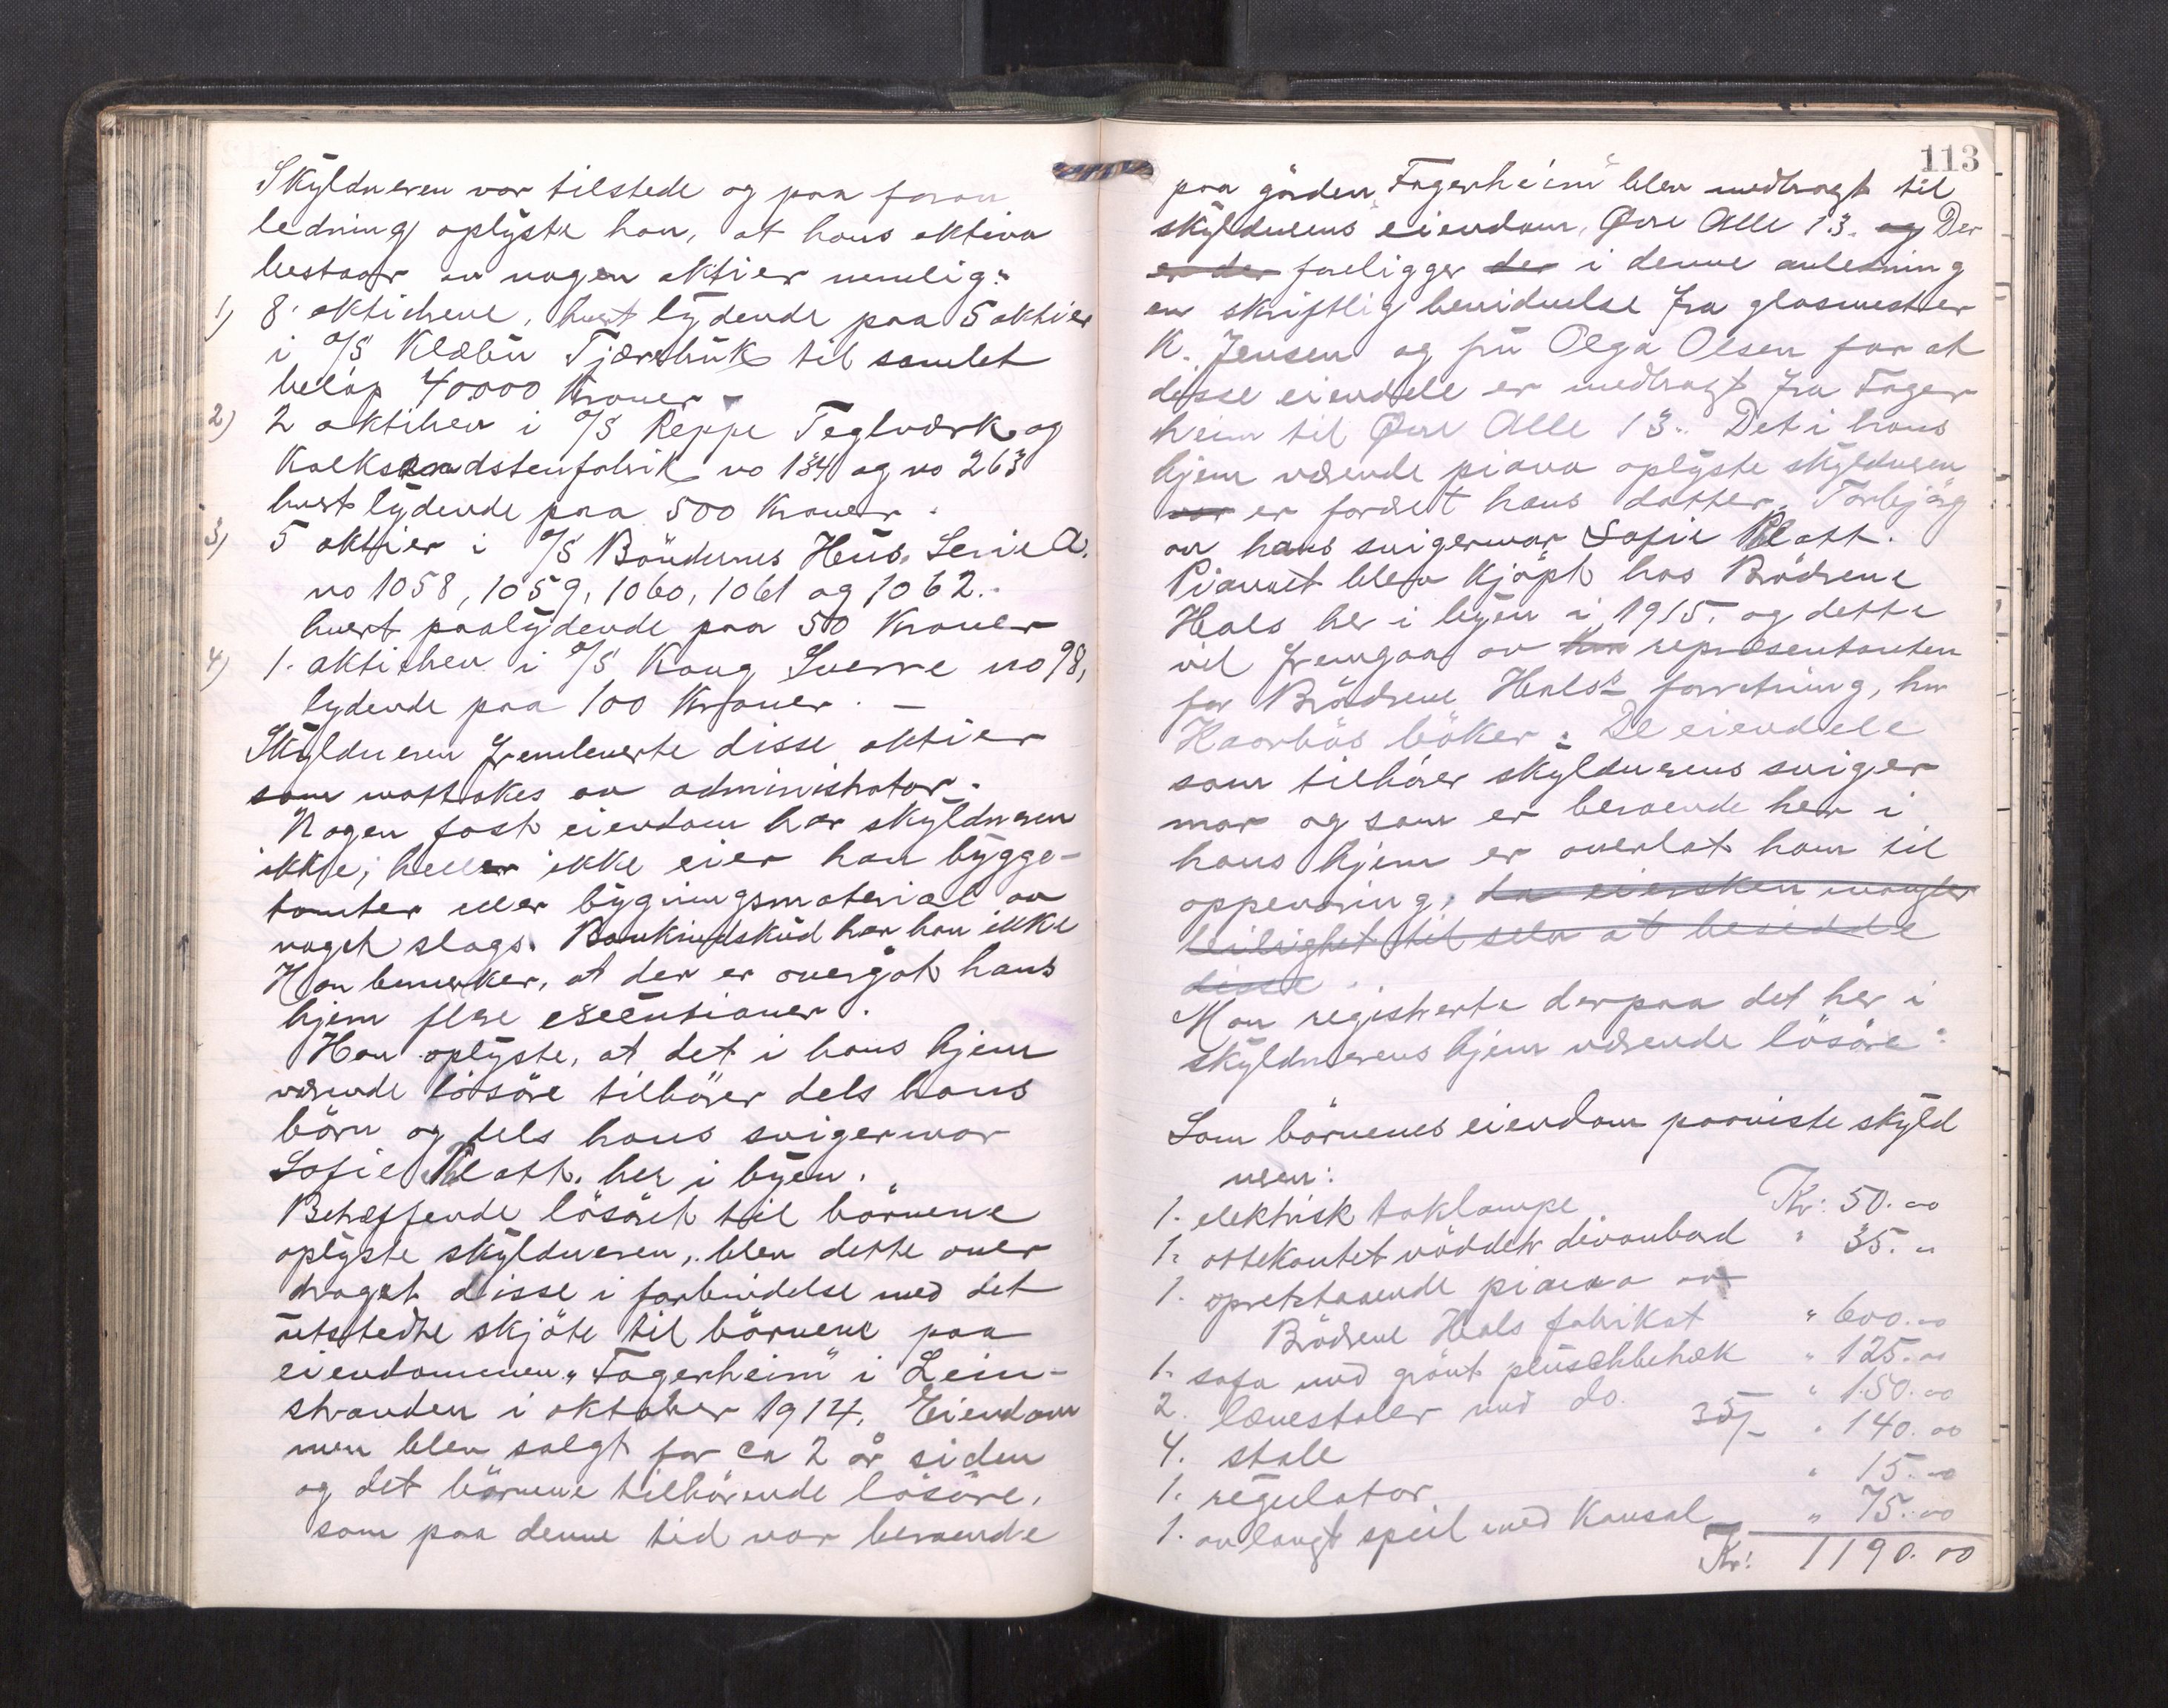 Skyldneren var tilstede og paa foran
ledning oplyste han, at hans aktiva
bestaar av nogen aktier nemlig:
1) 8 aktiebreve, hvert lydende paa 5 aktier
i A/S Klæbu Tjærebruk til samlet
beløp 40000 Kroner
2) 2 aktiebrev i A/S Reppe Teglværk og
Kalksandstenfabrik no 134 og no 263
hvert lydende paa 500 Kroner.
3) 5 aktier i A/S Bøndernes Hus. Serie A.
no 1058, 1059, 1060, 1061 og 1062.
hvert paalydende paa 50 Kroner
4) 1. aktiebrev i A/S Kong Sverre no 98,
lydende paa 100 Kroner. —
Skyldneren fremleverte disse aktier
som mottokes av administrator.
Nogen fast eiendom har skyldneren
ikke; heller ikke eier han bygge-
tomter eller bygningsmaterial av
noget slags. Bankindskud har han ikke
Han bemerker, at der er overgåt hans
hjem flere executioner.
Han oplyste, at det i hans hjem
værende løsøre tilhører dels hans
børn og dels hans svigermor
Sofie Klatt. her i byen.
Betræffende løsøret til børnene
oplyste skyldneren, blev dette over
draget disse i forbindelse med det
utstedte skjøte til børnene paa
eiendommen „Fagerheim" i Lein-
stranden i oktober 1914. Eiendom
men blev solgt for ca 2 år siden
og det børnene tilhørende løsøre,
som paa denne tid var beroende
113
paa gården „Fagerheim" blev medbragt til
skyldnerens eiendom, Øvre Alle 13. og Der
er der foreligger der i denne anledning
en skriftlig bevidnelse fra glasmester
K. Jensen og fru Olga Olsen for at
disse eiendele er medbragt fra Fager
heim til Øvre Alle 13. Det i hans
hjem værende piano oplyste skyldneren
var er foræret hans datter, Torbjørg
av hans svigermor Sofie Klatt.
Pianoet blev kjøpt hos Brødrene
Hals her i byen i 1915. og dette
vil fremgaa av repræsentanten
for Brødrene Hals's forretning, hr
Haarbøs bøker. De eiendele
som tilhører skyldnerens sviger
mor og som er beroende her i
hans hjem er overlat ham til
oppevaring, da eiersken mangler
leilighet til selv at besidde
disse.
Man registrerte derpaa det her i
skyldnerens hjem værende løsøre:
Som børnenes eiendom paaviste skyld
neren:
1. elektrisk taklampe Kr: 50.00
1. ottekantet nøddetr divanbord " 35. "
1. opretstaaende piano av
Brødrene Hals fabrikat " 600.00
1. sofa med grønt plüschbetræk " 125.00
2. lænestoler med do. " 150.00
4. stole 35/- " 140.00
1. regulator " 15.00
1. avlangt speil med Konsol " 75.00
Kr: 1190.00